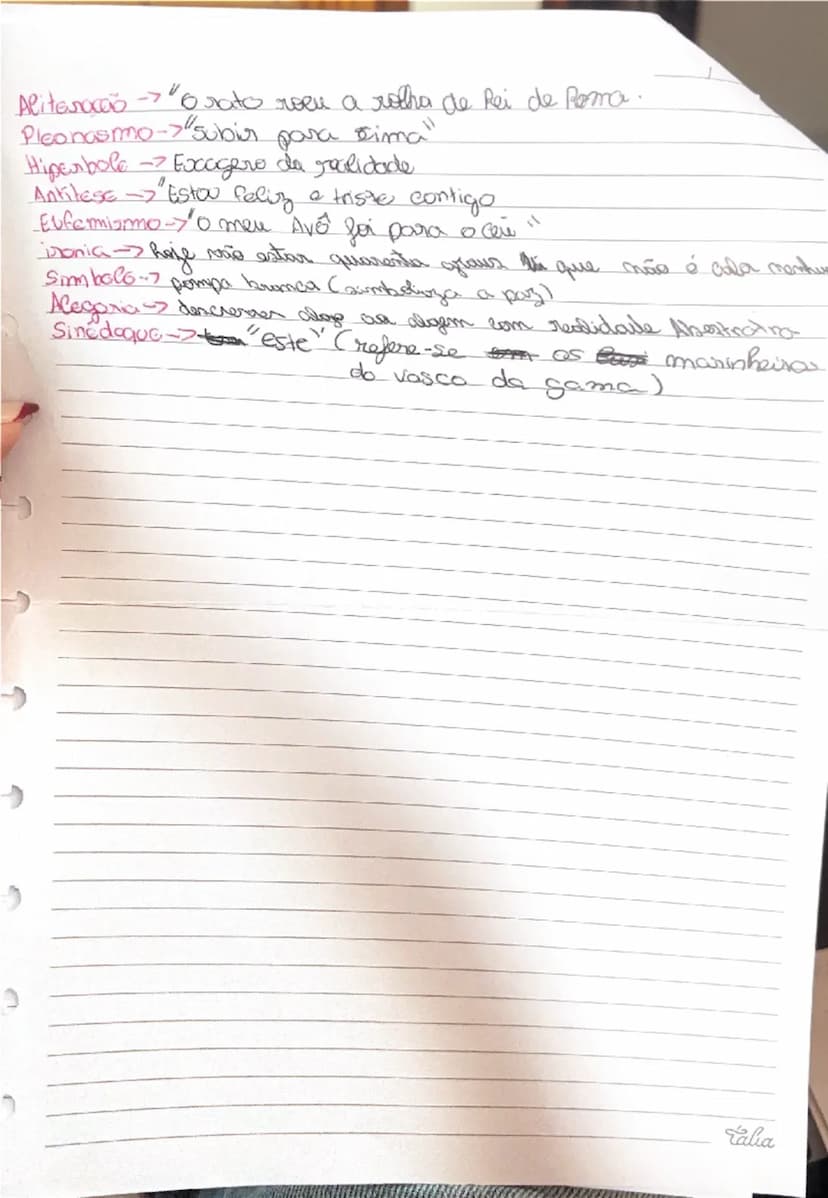 Aliteração -> "O rato roeu a rolha de Rei de Roma.
Pleonasmo -> "Subir para cima"
Hiperbole -> Exagero da realidade
Antitese -> "Estou feliz e triste contigo
Eufemismo -> "O meu Avô foi para o céu"
ironia -> Hoje não estar quarenta graus que não é nenhum
Simbolo -> pompa branca (simboliza a paz)
Alegoria -> descrever com realidade Abstrata
Sinédoque -> "este" (refere-se os marinheiros
do vasco da gama)
Tália